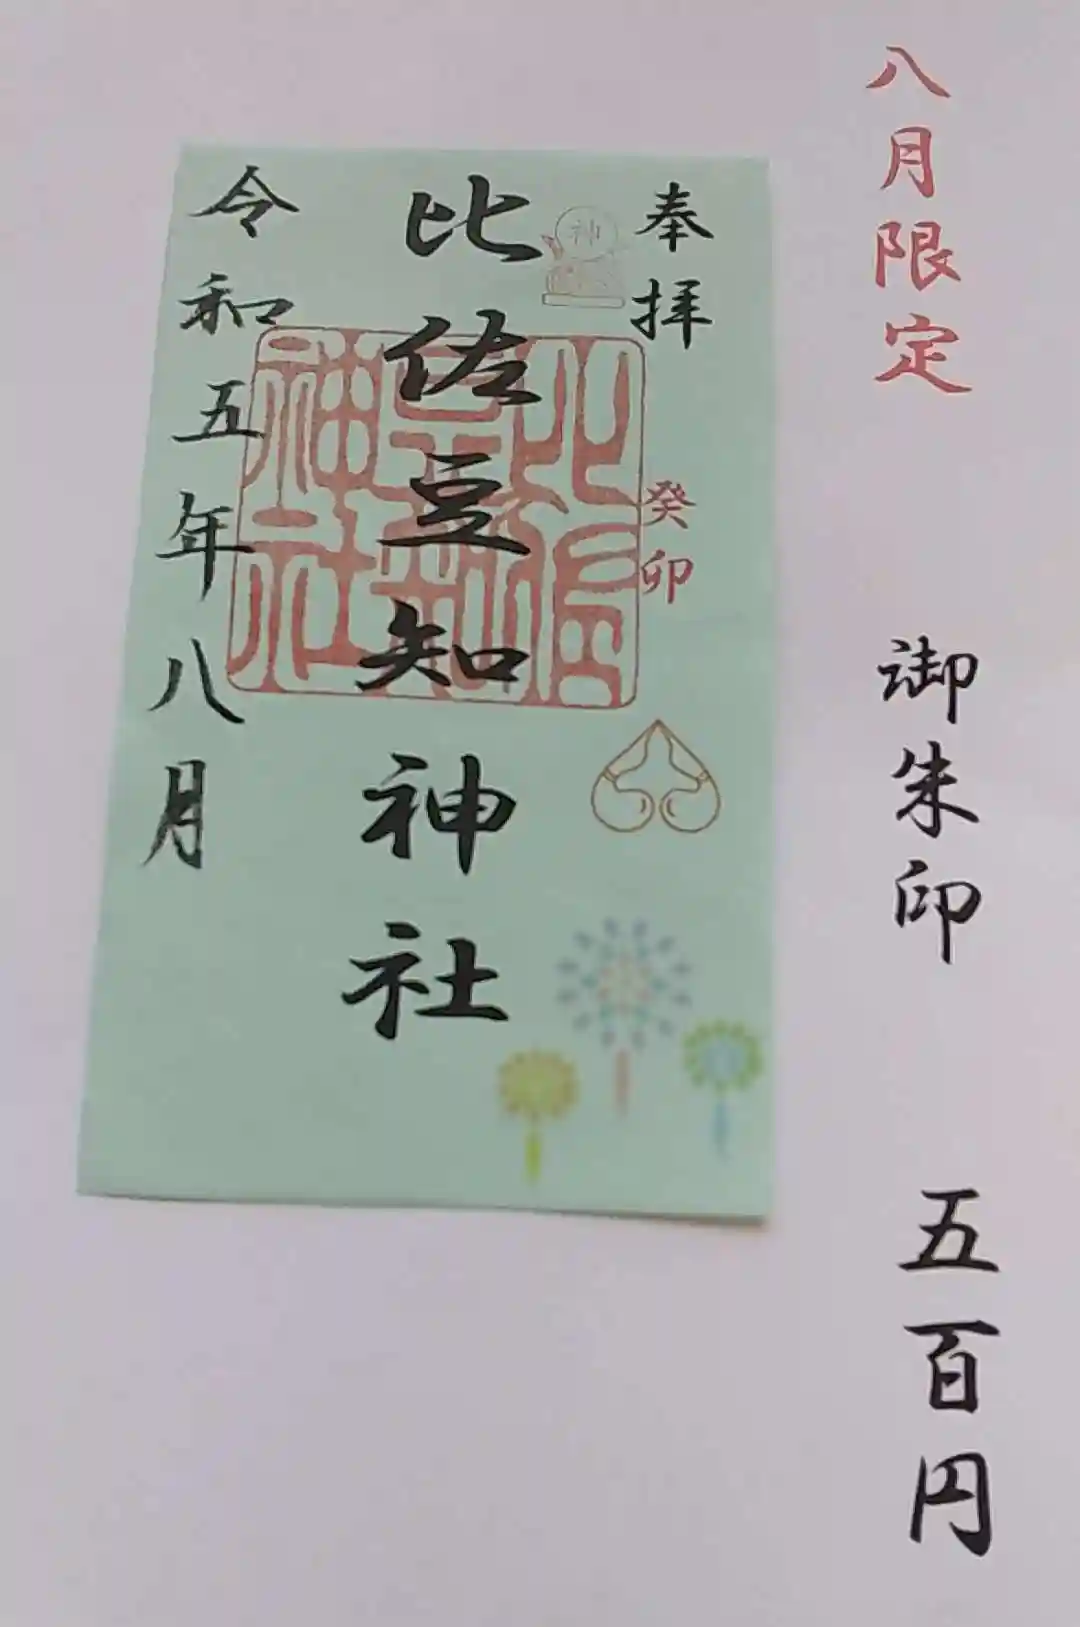 八月限定
御朱印
五百円
奉拝
神
癸卯
比佐豆知神社
比佐豆知神社
令和五年八月